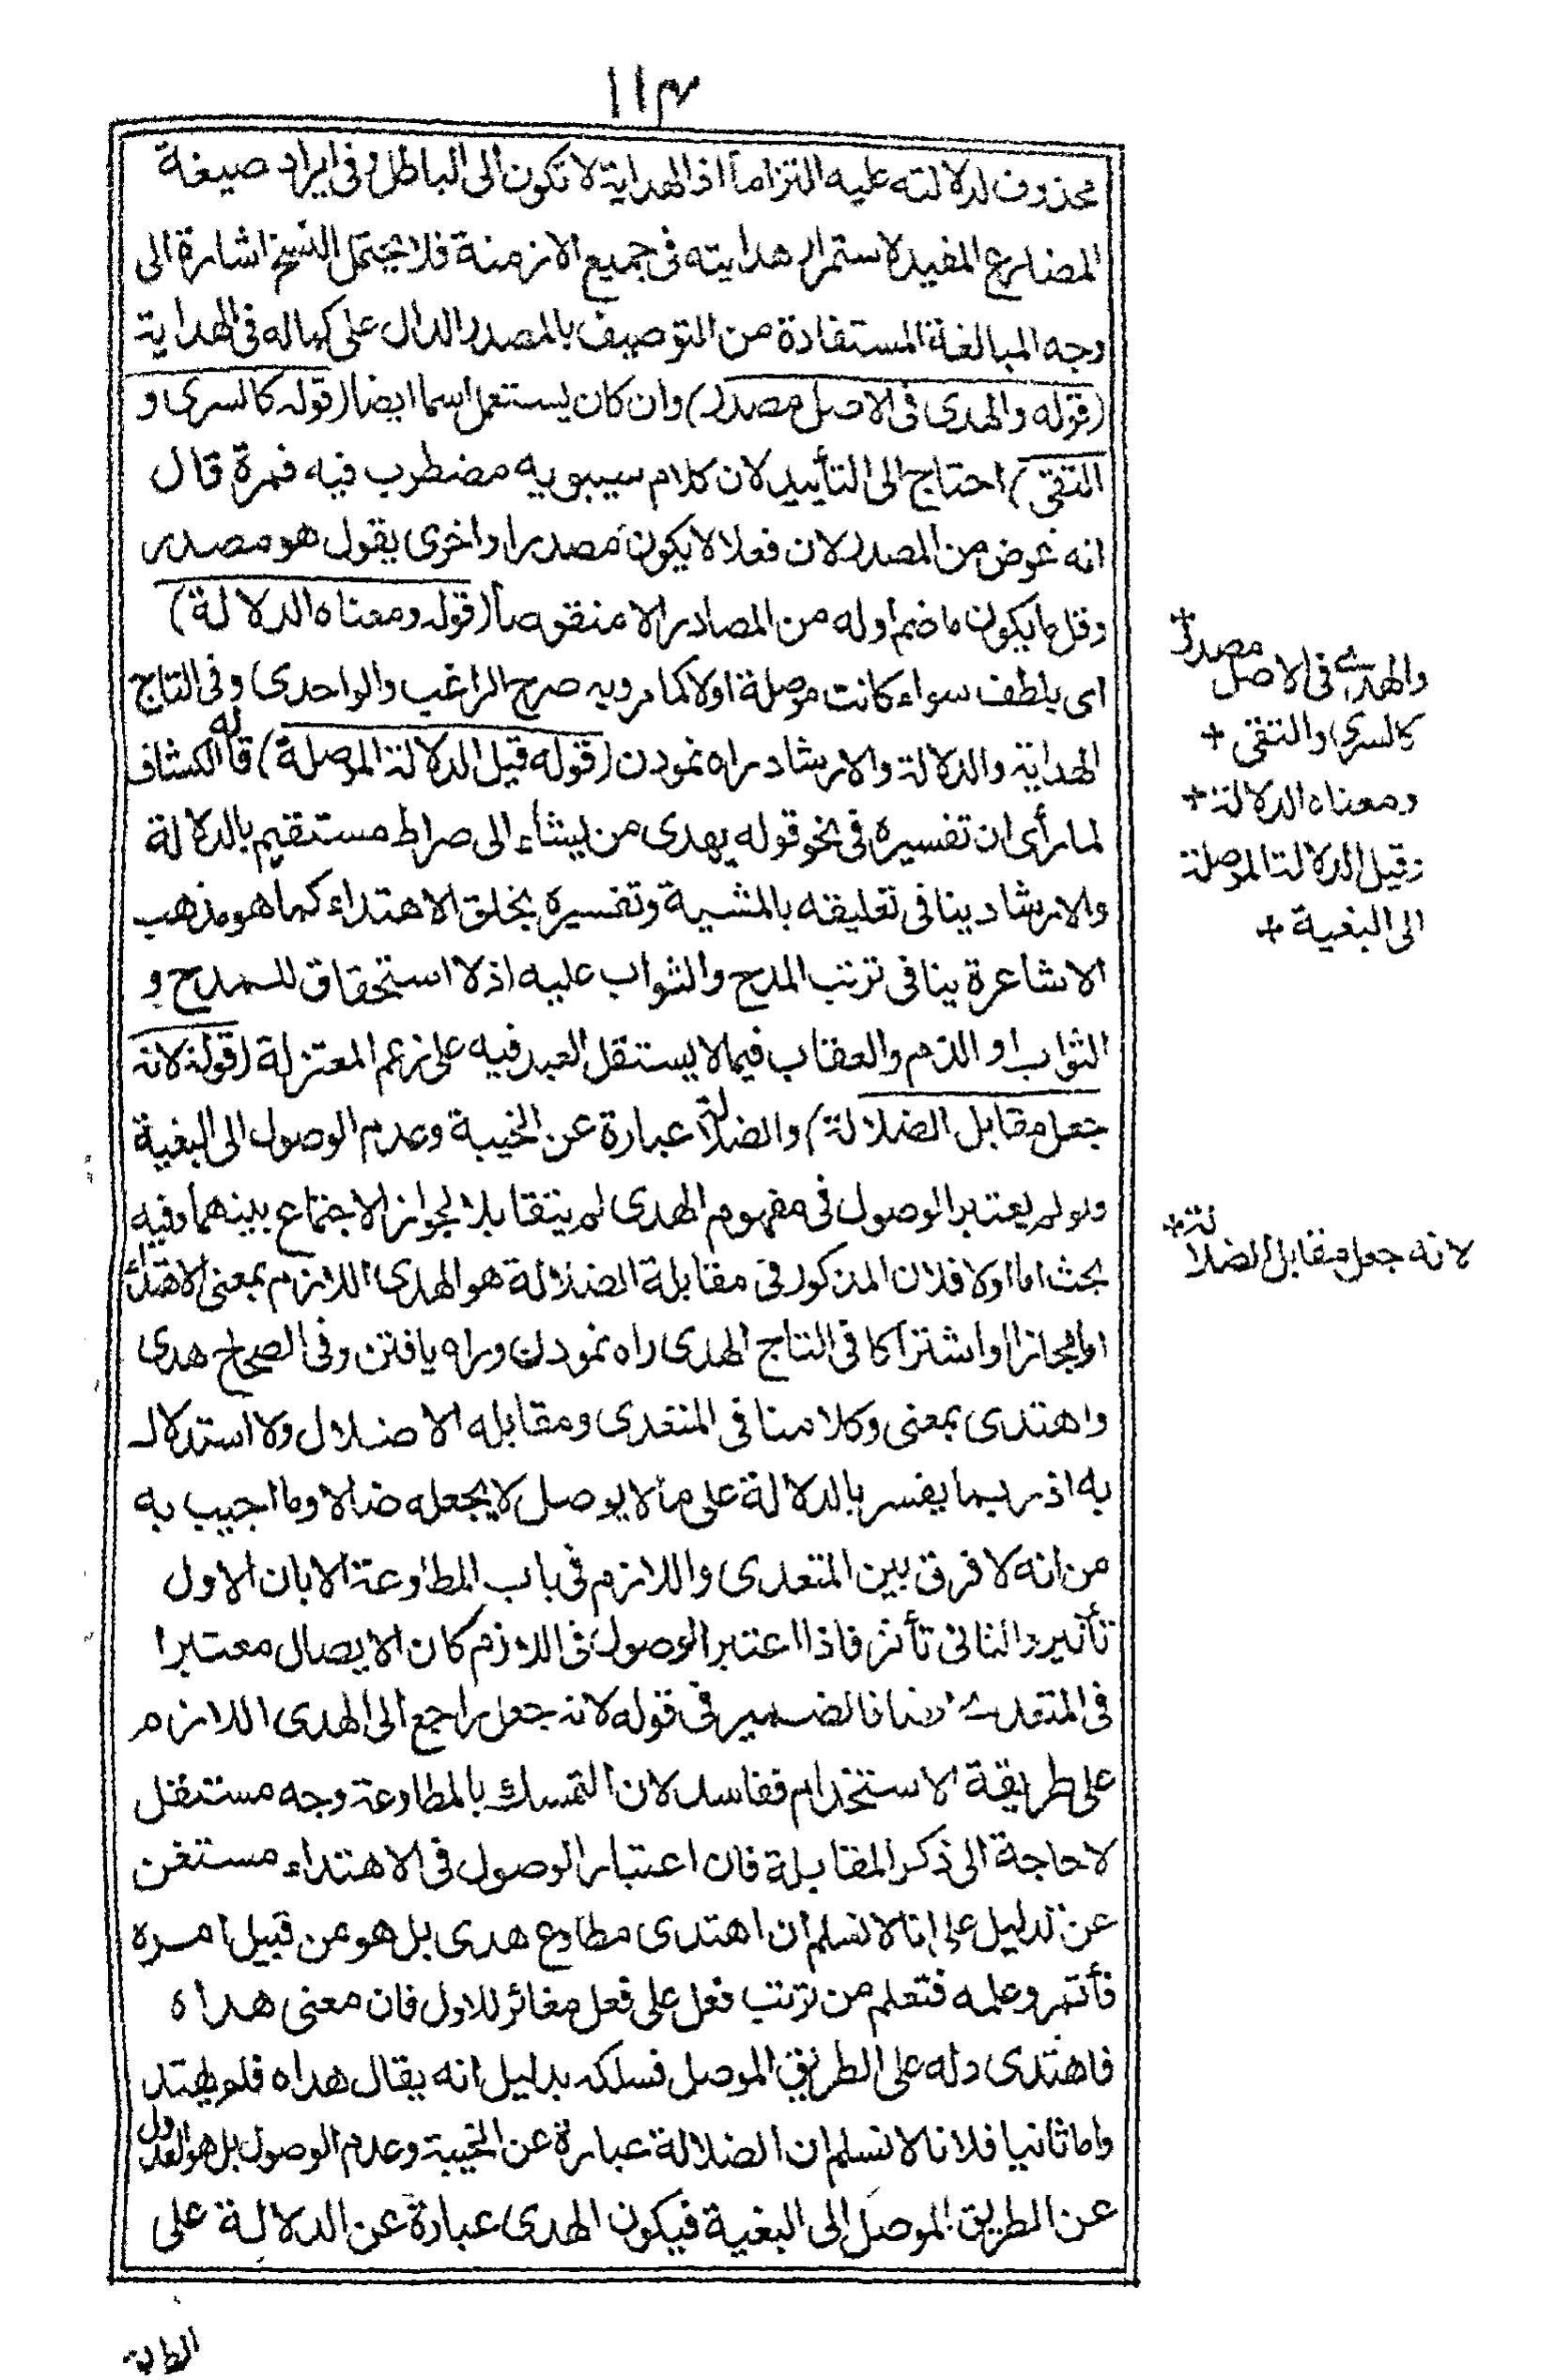 ١١٣
محذوف لدلالته عليه التزاما اذ الهداية لا تكون الى الباطل وفى ايراد صيغة
المضارع المفيد لاستمرار هدايته فى جميع الازمنة فلا يحتمل النسخ اشارة الى
وجه المبالغة المستفادة من التوصيف بالمصدر الدال على كماله فى الهداية
(قوله والهدى فى الاصل مصدر) وان كان يستعمل اسما ايضا (قوله كالسرى و
التقى) احتاج الى التأييد لان كلام سيبويه مضطرب فيه فمرة قال
انه عوض من المصدر لان فعلا لا يكون مصدرا واخرى يقول هو مصدر
وقل ما يكون ما ضم اوله من المصادر الا منقوصا (قوله ومعناه الدلالة)
اى بلطف سواء كانت موصلة اولا كما مر وبه صرح الراغب والواحدى وفى التاج
الهداية والدلالة والارشاد راه نمودن (قوله قيل الدلالة الموصلة) قاله الكشاف
لما رأى ان تفسيره فى نحو قوله يهدى من يشاء الى صراط مستقيم بالدلالة
والارشاد ينافى تعليقه بالمشية وتفسيره بخلق الاهتداء كما هو مذهب
الاشاعرة ينافى ترتب المدح والثواب عليه اذ لا استحقاق للمدح و
الثواب او الذم والعقاب فيما لا يستقل العبد فيه على زعم المعتزلة (قوله لانه
جعل مقابل الضلالة) والضلالة عبارة عن الخيبة وعدم الوصول الى البغية
ولو لم يعتبر الوصول فى مفهوم الهدى لم يتقابلا لجواز الاجتماع بينهما وفيه
بحث اما اولا فلان المذكور فى مقابلة الضلالة هو الهدى اللازم بمعنى الاهتداء
اما مجازا او اشتراكا فى التاج الهدى راه نمودن وراه يافتن وفى الصحاح هدى
واهتدى بمعنى وكلامنا فى المتعدى ومقابله الاضلال ولا استدلال
به اذ ربما يفسر بالدلالة على ما لا يوصل لا يجعله ضالا وما اجيب به
من انه لا فرق بين المتعدى واللازم فى باب المطاوعة الا بان الاول
تأثير والثانى تأثر فاذا اعتبر الوصول فى اللازم كان الايصال معتبرا
فى المتعدى ايضا فالضمير فى قوله لانه جعل راجع الى الهدى اللازم
على طريقة الاستخدام ففاسد لان التمسك بالمطاوعة وجه مستقل
لا حاجة الى ذكر المقابلة فان اعتبار الوصول فى الاهتداء مستغن
عن الدليل على انا لا نسلم ان اهتدى مطاوع هدى بل هو من قبيل امره
فأتمر وعلمه فتعلم من ترتب فعل على فعل مغائر للاول فان معنى هداه
فاهتدى دله على الطريق الموصل فسلكه بدليل انه يقال هداه فلم يهتد
واما ثانيا فلانا لا نسلم ان الضلالة عبارة عن الخيبة وعدم الوصول بل هو العدول
عن الطريق الموصل الى البغية فيكون الهدى عبارة عن الدلالة على
والهدى فى الاصل مصدر
كالسرى والتقى +
ومعناه الدلالة +
وقيل الدلالة الموصلة
الى البغية +
لانه جعل مقابل الضلالة +